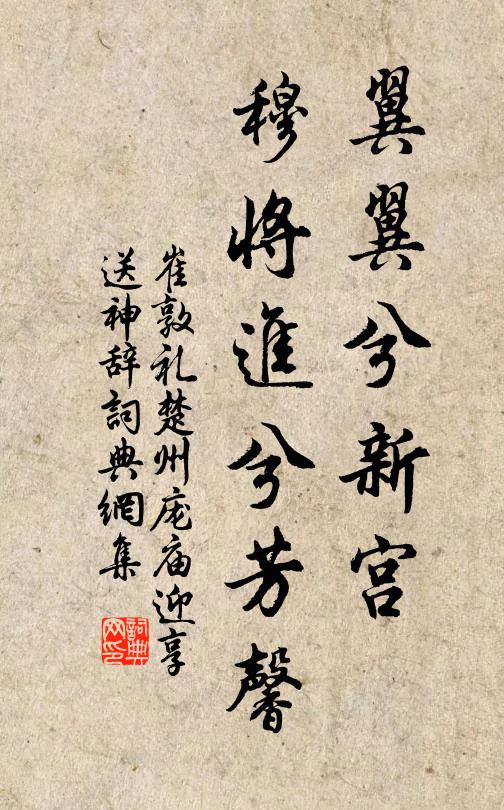 翼翼兮新宫
穆将進兮芳馨
崔敦礼楚州庞庙迎享
送神辞詞典網集
詞典网印